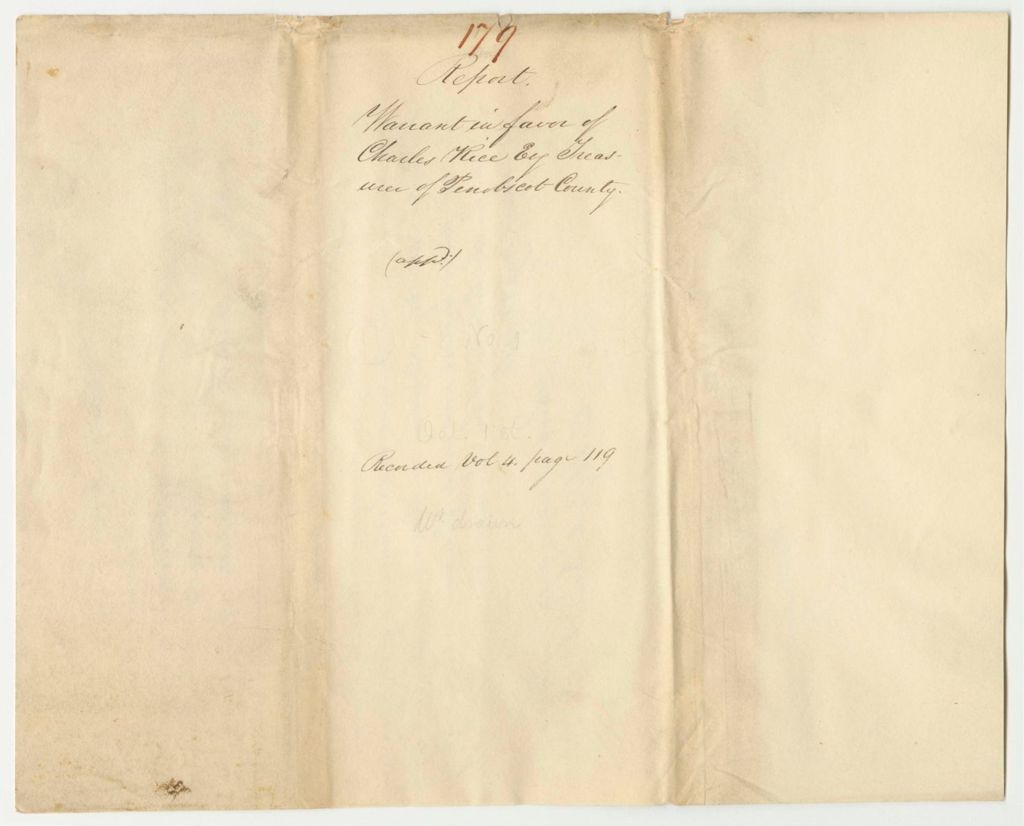 179
Report.
Warrant in favor of
Charles Rice Esq Treas-
urer of Penobscot County.
(appd.)
No. 1
Oct. 1st.
Recorded Vol 4. page 119
Wt drawn